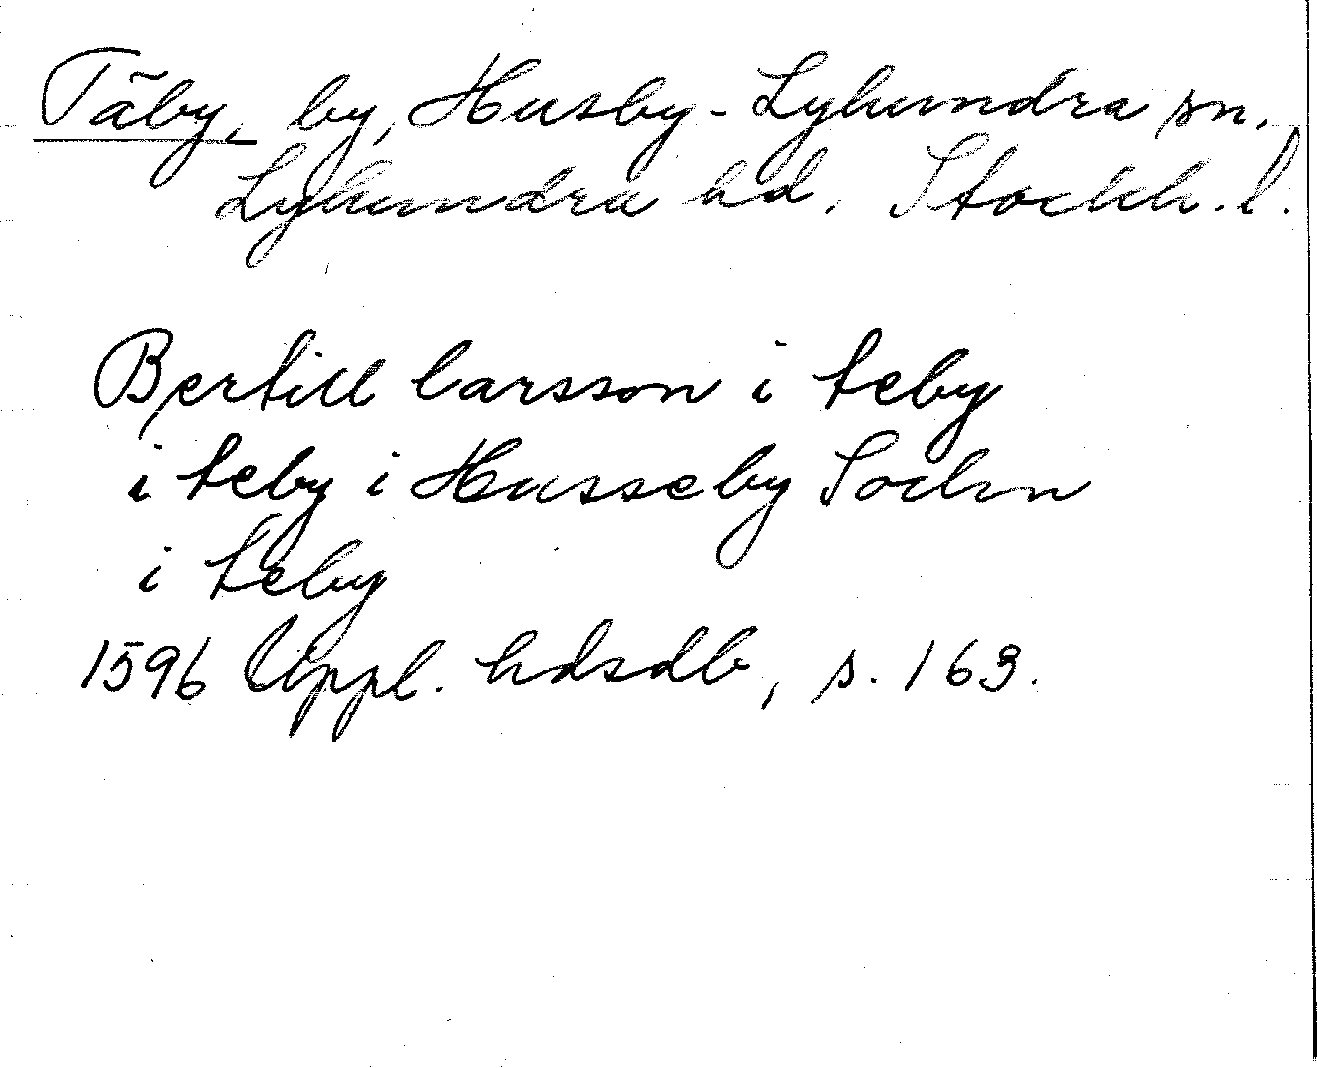 Täby, by, Husby-Lyhundra sn.
Lyhundra hd. Stockh. l.
Bertill larsson i teby
i teby i Husseby Sochn
i teby
1596 Uppl. hdsdb, s. 163.